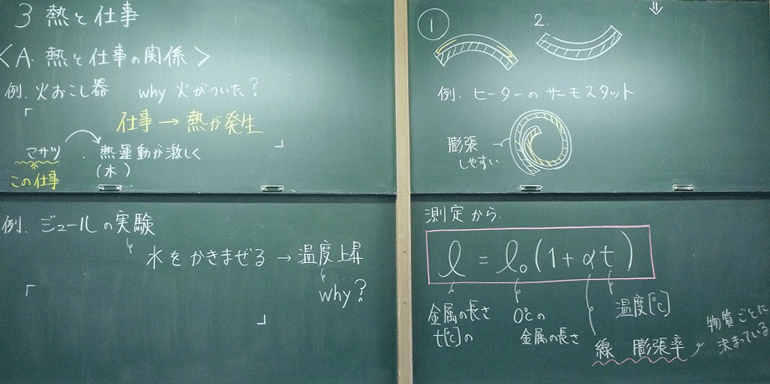 3 熱と仕事
〈A. 熱と仕事の関係〉
例. 火おこし器 why 火がついた?
「
仕事 → 熱が発生
」
マサツ . 熱運動が激しく
(木)
この仕事
例. ジュールの実験
水をかきまぜる → 温度上昇
why?
「
」
① 2.
⇓
例. ヒーターのサーモスタット
膨張
しやすい
測定から.
l = l₀ (1 + αt)
金属の長さ
t[℃]の
0℃の
金属の長さ
温度[℃]
線 膨張率
物質ごとに
決まっている